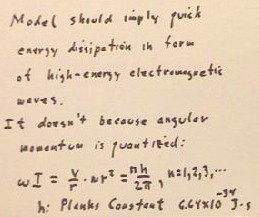 Model should imply quick
energy dissipation in form
of high-energy electromagnetic
waves.
It doesn't because angular
momentum is quantised:
ωI = v/r · mr² = nh/2π, n=1,2,3,...
h: Planks Constant 6.64x10⁻³⁴ J·s